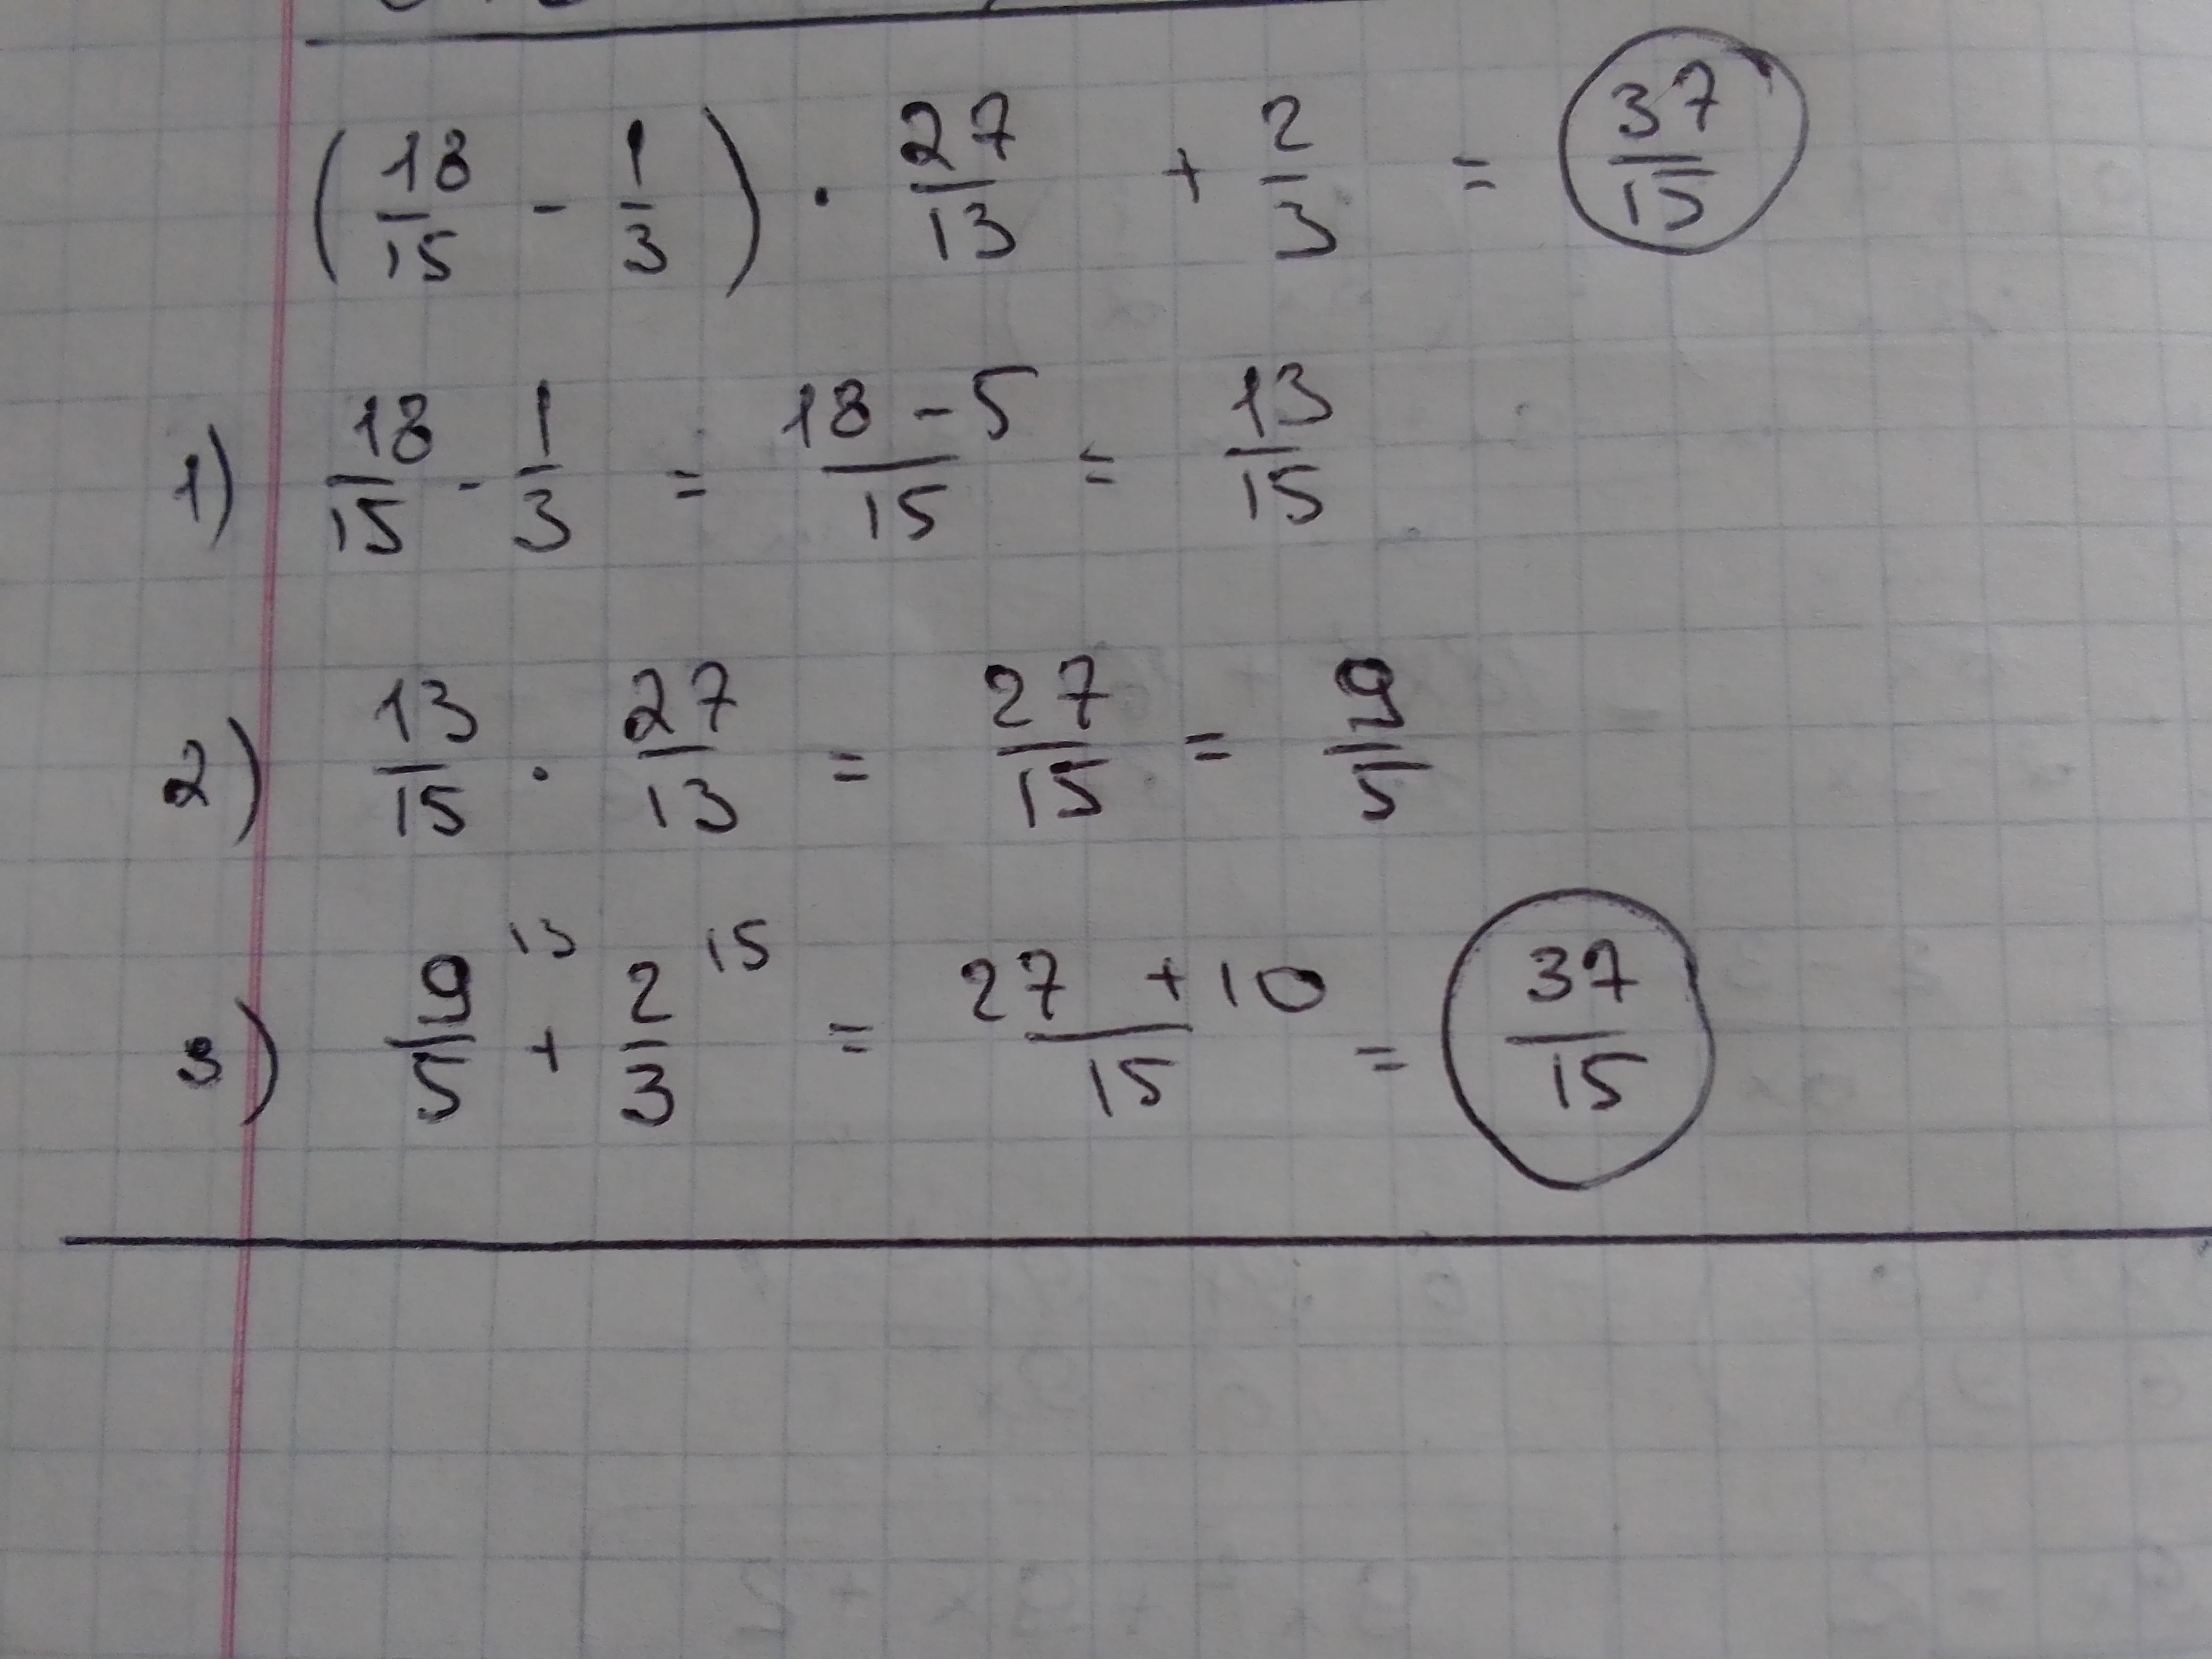 (18/15 - 1/3) · 27/13 + 2/3 = 37/15
1) 18/15 - 1/3 = 18 - 5/15 = 13/15
2) 13/15 · 27/13 = 27/15 = 9/5
3) 9/5 15 + 2/3 15 = 27 + 10/15 = 37/15